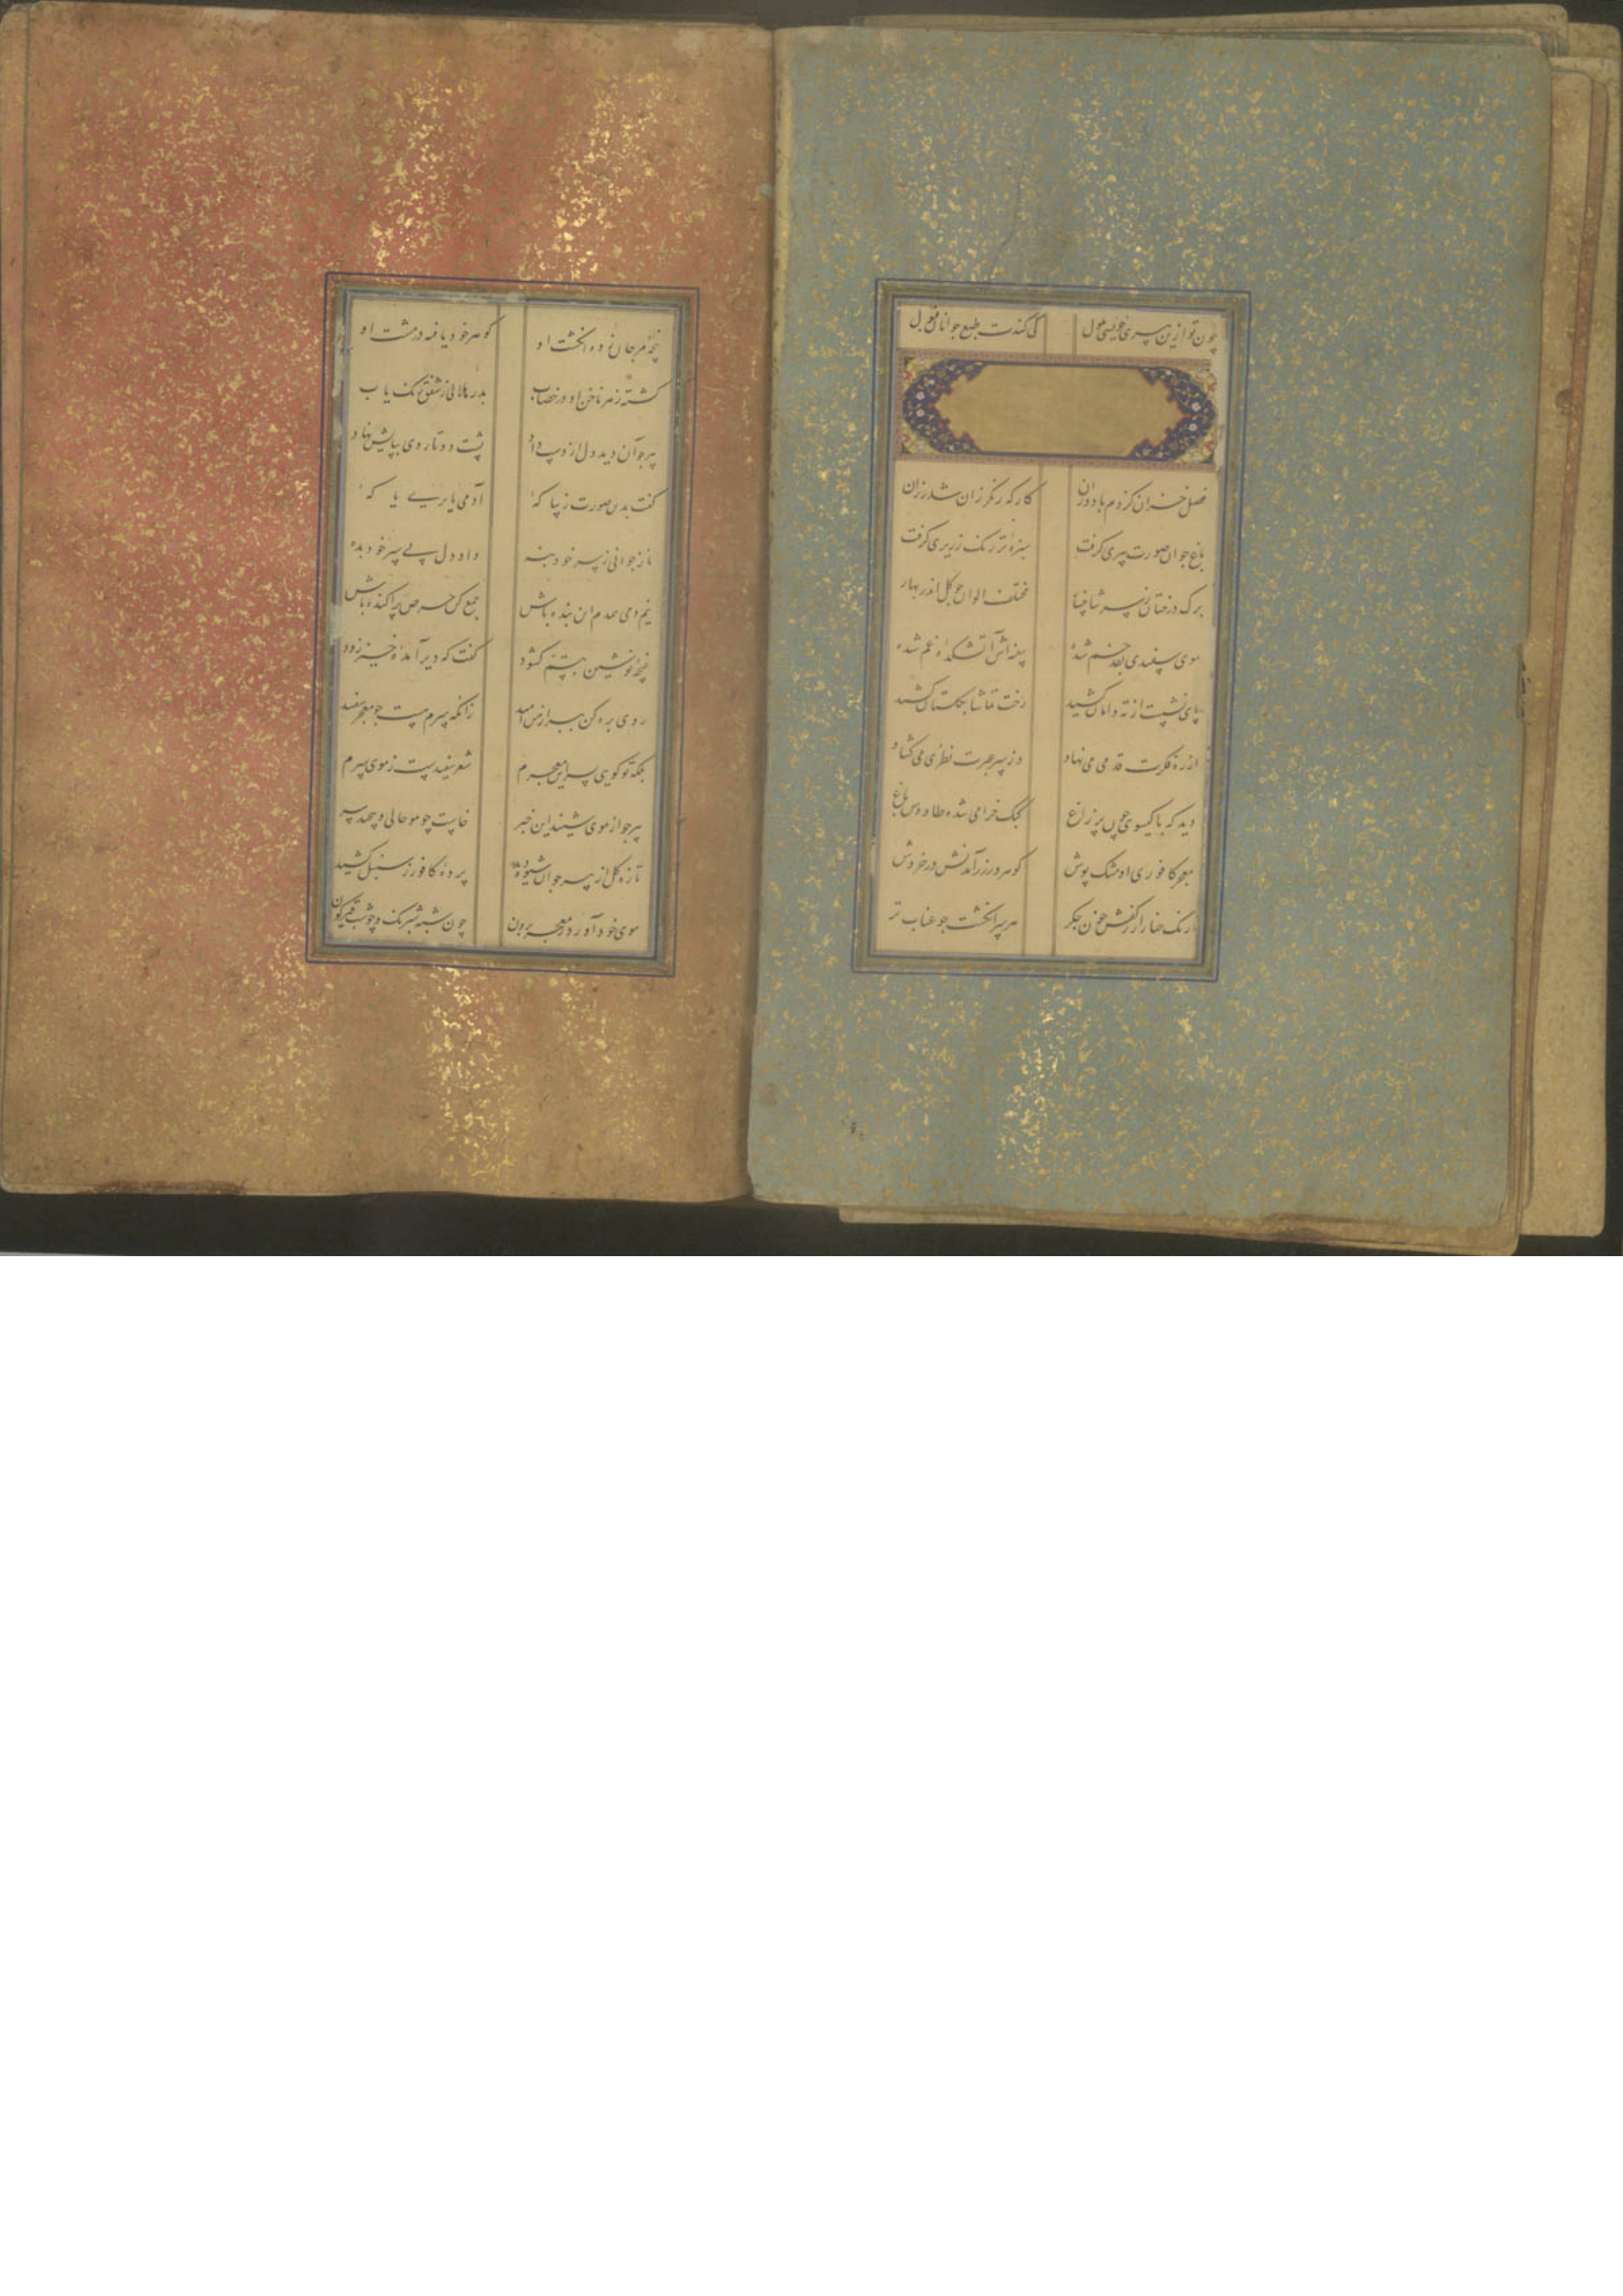 چون تو ازین پیری خویشی ملول کی کندت طبع جوانان قبول
فصل خزان کز دم باد وزان کارکه رنگرزان شد رزان
باغ جوان صورت پیری گرفت سبزهٔ تر رنگ زریری گرفت
برگ درختان ز سر شاخسار مختلف الوان چو گل اندر بهار
موی سفیدی بقد خم شدهٔ سینه اش آتشکدهٔ غم شده
پای نشست از ته دامان کشید رخت تماشا بگلستان کشید
از ره فکرت قدمی می نهاد وز سر عبرت نظری می گشاد
دید که با گیسوی چون پر زاغ کبک خرامی شده طاووس باغ
معجر کافوری او مشک پوش گوهر و زر ز آمدنش در خروش
رنگ حنا را ز کفش خون جگر هر سر انگشت چو عناب تر
پنجهٔ مرجان نوده انگشت او گوهر خود یافه در مشت او
گشته ز هر ناخن او در خضاب بدر هلالی ز شفق رنگ یاب
پیر چو آن دید دل از دست داد پشت دوتا روی بپایش نهاد
گفت بدین صورت زیبا کهٔ آدمی یا پری یا کهٔ
ناز جوانی ز سر خود بنه داد دل پیر خود بده
نیم دمی همدم این بنده باش جمع کن حرص پراکنده باش
غنچهٔ نوشین بتبسم گشود گفت که دیر آمدهٔ خیز زود
روی بره کن ببر از من امید زانکه سرم هست چو معجر سفید
بلکه تو گویی بسر این معجرم شعر سفیدیست ز موی سرم
پیر چو از موی شنید این خبر خاست چو مو حالی و پیچید سر
تازه گل از پیر چو آن شیوه دید پردهٔ کافور ز سنبل کشید
موی خود آورد ز معجر برون چون شبه شبرنگ و چو شب قیرگون